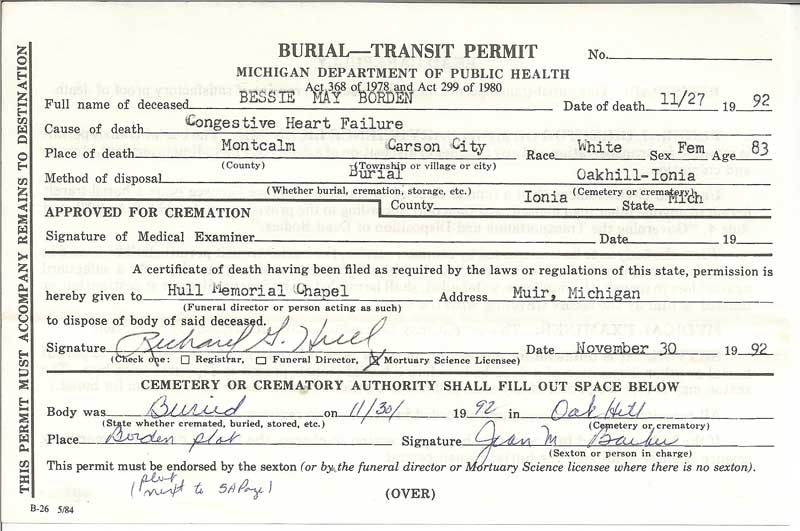 BURIAL—TRANSIT PERMIT No.
MICHIGAN DEPARTMENT OF PUBLIC HEALTH
Act 368 of 1978 and Act 299 of 1980
Full name of deceased BESSIE MAY BORDEN Date of death 11/27 1992
Cause of death Congestive Heart Failure
Place of death Montcalm Carson City Race White Sex Fem Age 83
(County) (Township or village or city)
Method of disposal Burial Oakhill-Ionia
(Whether burial, cremation, storage, etc.) (Cemetery or crematory)
County Ionia State Mich
APPROVED FOR CREMATION
Signature of Medical Examiner Date 19
A certificate of death having been filed as required by the laws or regulations of this state, permission is
hereby given to Hull Memorial Chapel Address Muir, Michigan
(Funeral director or person acting as such)
to dispose of body of said deceased.
Signature Richard G. Hull Date November 30 1992
(Check one: ☐ Registrar, ☐ Funeral Director, ☒ Mortuary Science Licensee)
CEMETERY OR CREMATORY AUTHORITY SHALL FILL OUT SPACE BELOW
Body was Buried on 11/30/ 1992 in Oak Hill
(State whether cremated, buried, stored, etc.) (Cemetery or crematory)
Place Borden plot Signature Jean M Barker
(Sexton or person in charge)
This permit must be endorsed by the sexton (or by the funeral director or Mortuary Science licensee where there is no sexton).
(plot
next to SAPage)
(OVER)
B-26 5/84
THIS PERMIT MUST ACCOMPANY REMAINS TO DESTINATION